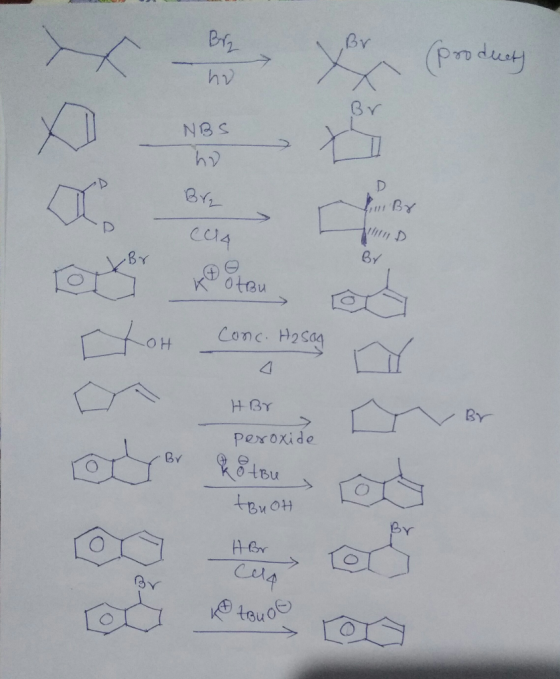 Br2 hν Br (product)
NBS hν Br
D D Br2 CCl4 D Br D Br
Br K⊕ ⊖OtBu
OH Conc. H2SO4 Δ
HBr peroxide Br
Br K⊕ O⊖tBu tBuOH
HBr CCl4 Br
Br K⊕ tBuO⊖